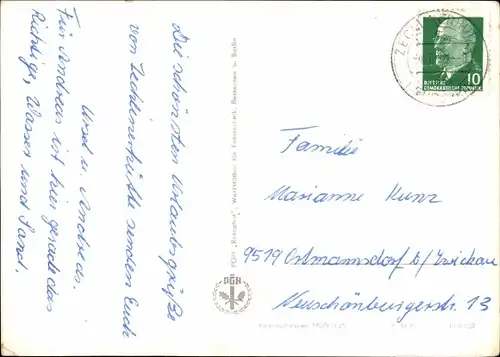 Die schönsten Urlaubsgrüße
von Zechlinerhütte senden Euch
Ursel u. Andreas.
Für Andreas ist hier gerade das
Richtige, Wasser und Sand.
PGH „Rotophot“, Werkstätten für Fotografik, Bestensee b. Berlin
PGH
ZECHL
10
DEUTSCHE
DEMOKRATISCHE REPUBLIK
Familie
Marianne Kunz
9519 Ortmannsdorf b/Zwickau
Neuschönburgerstr. 13